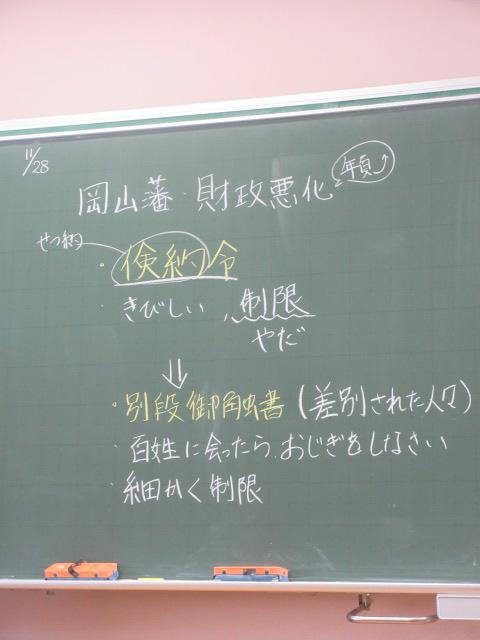 11/28
岡山藩・財政悪化 年貢↑
せつ約
・倹約令
・きびしい、制限
やだ
⇓
・別段御触書(差別された人々)
・百姓に会ったら、おじぎをしなさい
・細かく制限